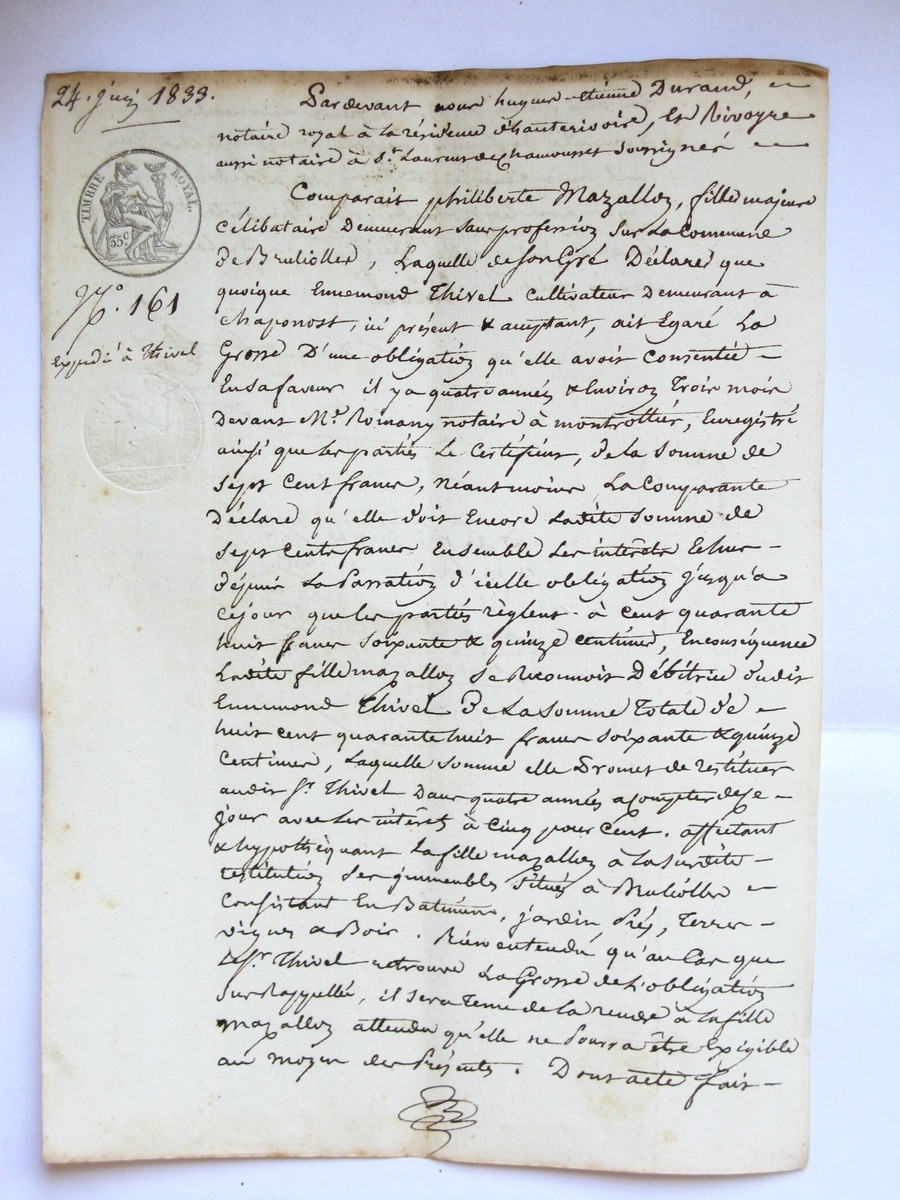 24. juin 1833.
TIMBRE ROYAL.
35c
N°. 161
Expédié à Thivel
Pardevant nous hugues etienne Durand,
notaire royal à la résidence d'hauterivoire, et Rivoyre
aussi notaire à St. Laurent de Chamousset soussignés
Comparait philiberte Mazallon, fille majeure
célibataire Demeurant sans profession sur la Commune
de Brulioller, Laquelle de son Gré Déclare que
quoique Ennemond Thivel cultivateur Demeurant à
chaponost, ici présent & acceptant, ait Egaré La
Grosse D'une obligation qu'elle avoit consentie
En sa faveur il y a quatre années & Environ Trois mois
Devant Me. Romany notaire à montrottier, Enregistré
ainsi que les parties Le Certifient, de la somme de
sept Cent francs, néantmoins La Comparante
Déclare qu'elle doit Encore Ladite somme de
sept Cents francs Ensemble Les intérêts Echus
depuis La Passation d'icelle obligation jusqu'a
ce jour que les parties règlent à cent quarante
huit francs soixante & quinze centimes, En conséquence
Ladite fille mazallon se Reconnoit Débitrice dudit
Ennemond Thivel De La Somme Totale de
huit cent quarante huit francs soixante & quinze
Centimes, Laquelle somme elle Promet de restituer
audit Sr. Thivel Dans quatre années a compter de ce
jour avec les intérêts à Cinq pour Cent. affectant
& hypothéquant La fille mazallon à la susdite
restitution ses immeubles situés à Brulioller
Consistant En Batimens, jardin, Prés, Terres
vignes & Bois. Bien entendu qu'au Cas que
Le Sr. Thivel retrouve La Grosse de L'obligation
sus Rappellée, il sera Tenu de la rendre à la fille
mazallon attendu qu'elle ne Pourra être Exigible
au moyen des Présentes. Dont acte fait